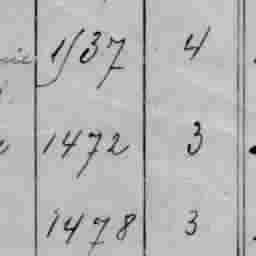 1537 4
1472 3
1478 3